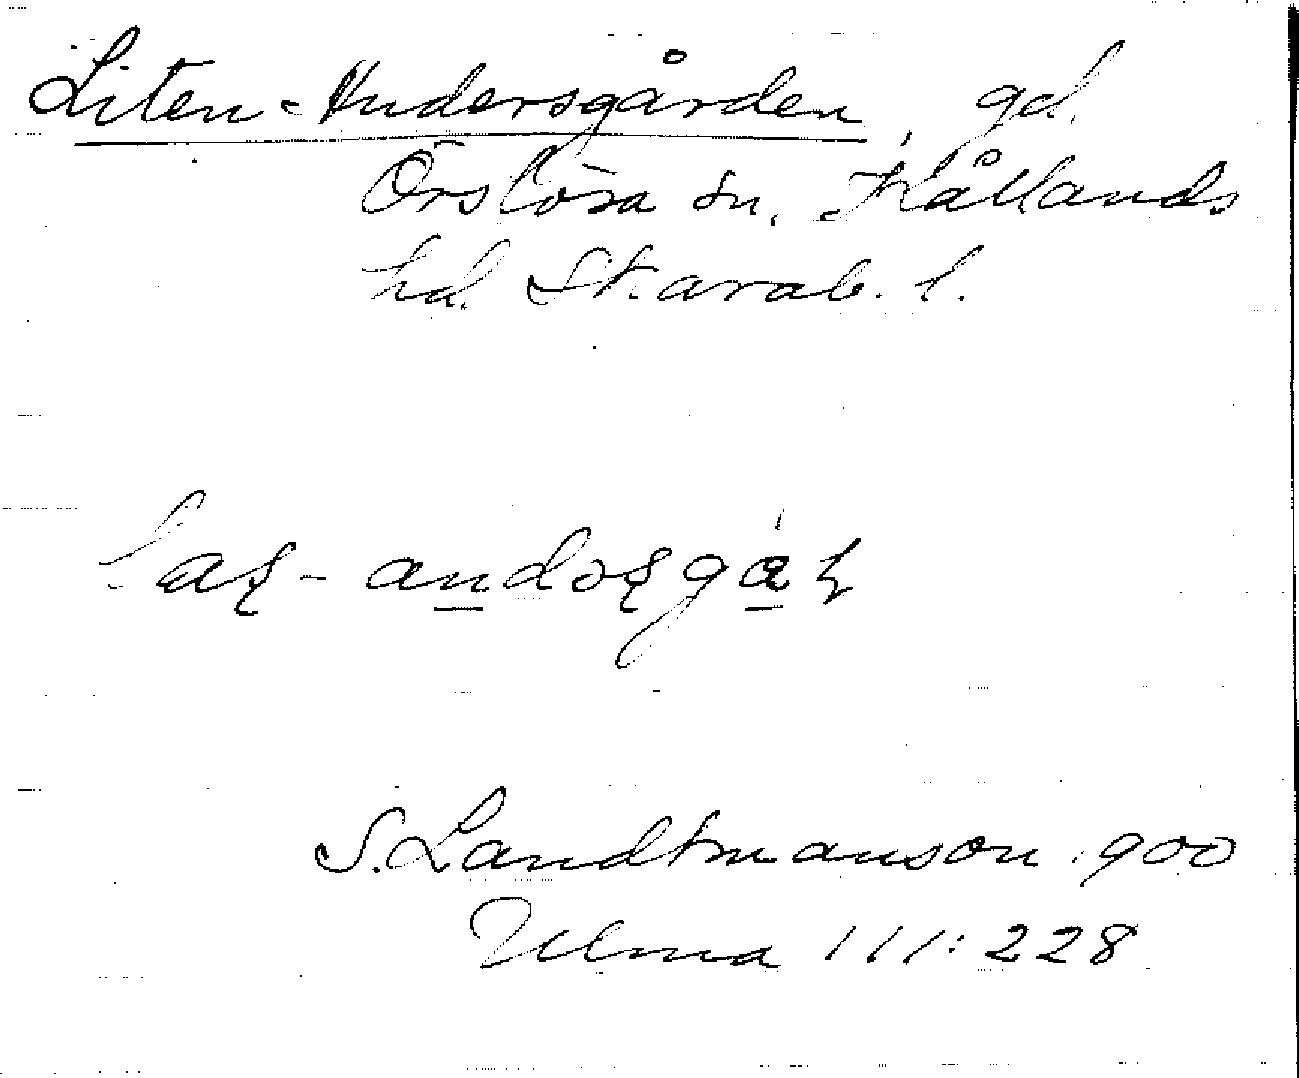 Liten-Andersgården, gd.
Örslösa sn, Kållands
hd. Skarab. l.
S. Landtmanson 1900
Ulma 111:228